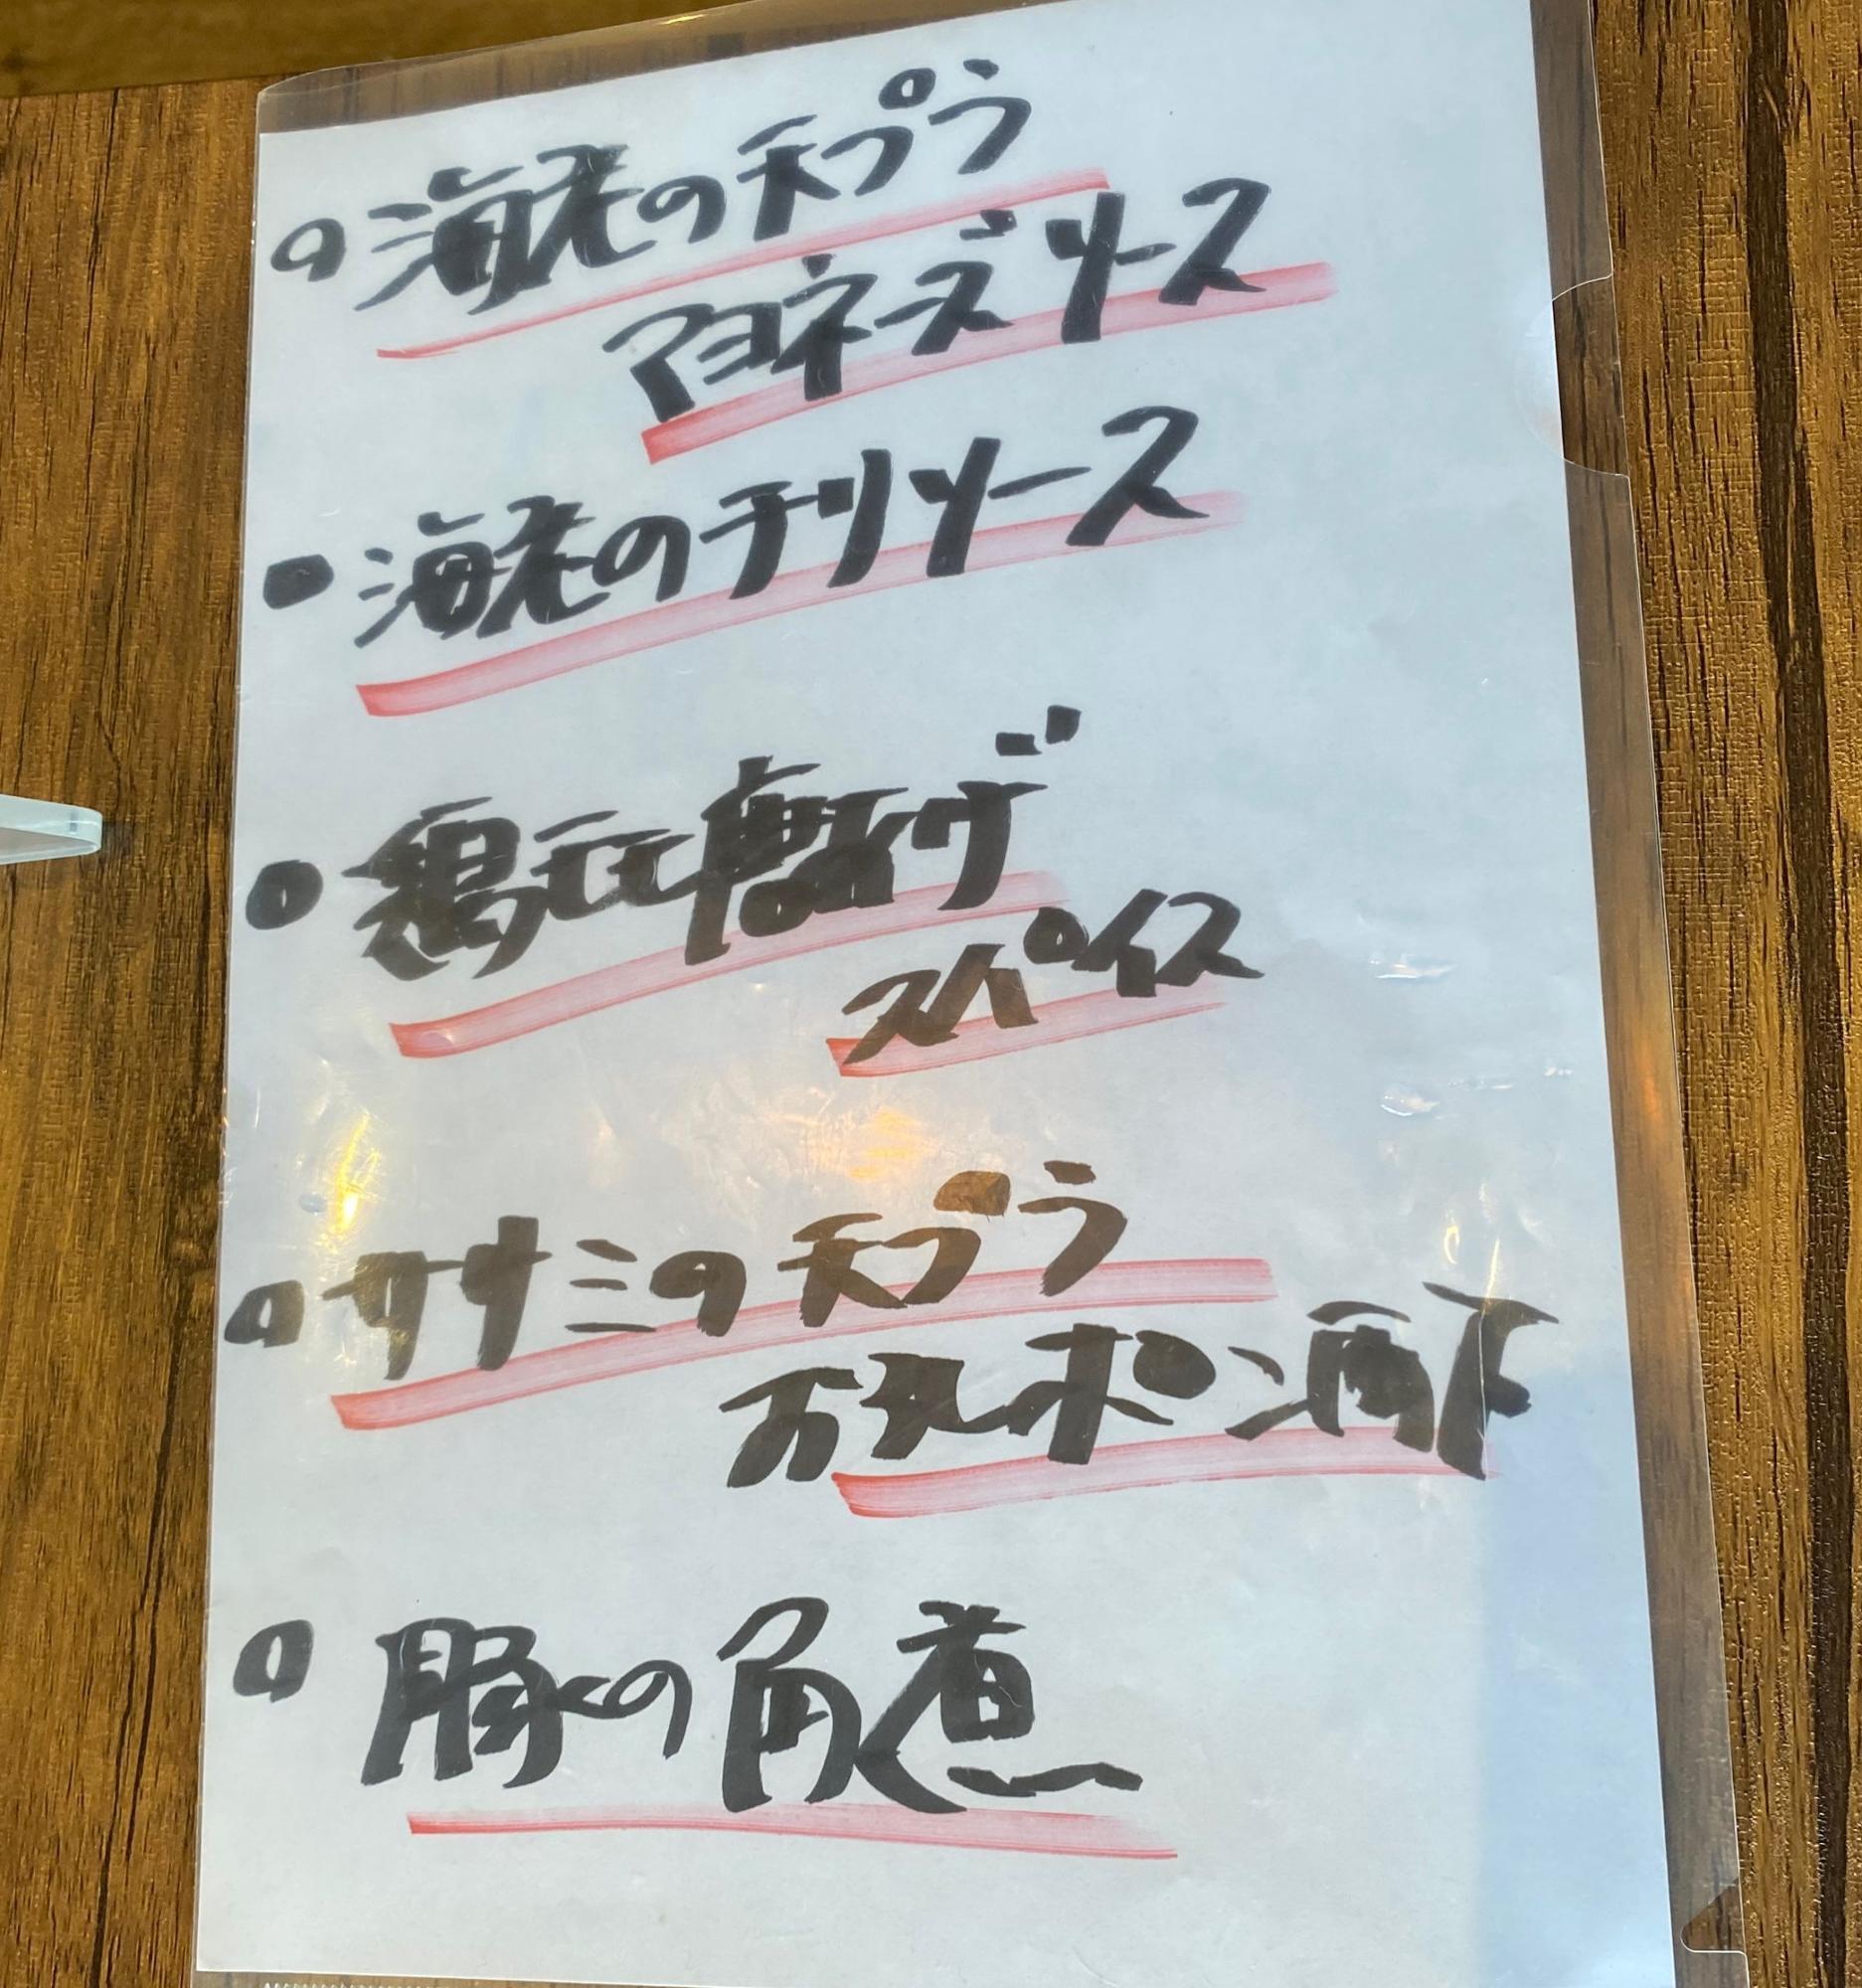 ・海老の天プラ
マヨネーズソース
・海老のチリソース
・鶏モモ唐揚ゲ
スパイス
・ササミの天プラ
おろしポン酢
・豚の角煮